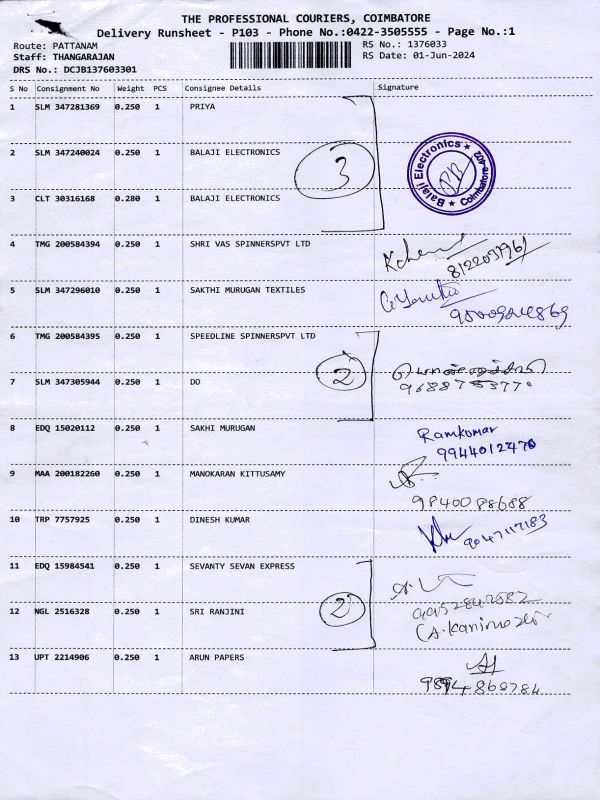 THE PROFESSIONAL COURIERS, COIMBATORE
Delivery Runsheet - P103 - Phone No.:0422-3505555 - Page No.:1
Route: PATTANAM
RS No.: 1376033
Staff: THANGARAJAN
RS Date: 01-Jun-2024
DRS No.: DCJB137603301
S No Consignment No Weight PCS Consignee Details Signature
1 SLM 347281369 0.250 1 PRIYA
2 SLM 347240024 0.250 1 BALAJI ELECTRONICS
3
Balaji Electronics ★ Coimbatore-402 ★
3 CLT 30316168 0.280 1 BALAJI ELECTRONICS
4 TMG 200584394 0.250 1 SHRI VAS SPINNERSPVT LTD
5 SLM 347296010 0.250 1 SAKTHI MURUGAN TEXTILES
6 TMG 200584395 0.250 1 SPEEDLINE SPINNERSPVT LTD
2
7 SLM 347305944 0.250 1 DO
8 EDQ 15020112 0.250 1 SAKHI MURUGAN
Ramkumar
9944012470
9 MAA 200182260 0.250 1 MANOKARAN KITTUSAMY
9840088688
10 TRP 7757925 0.250 1 DINESH KUMAR
9047117183
11 EDQ 15984541 0.250 1 SEVANTY SEVAN EXPRESS
2
12 NGL 2516328 0.250 1 SRI RANJINI
13 UPT 2214906 0.250 1 ARUN PAPERS